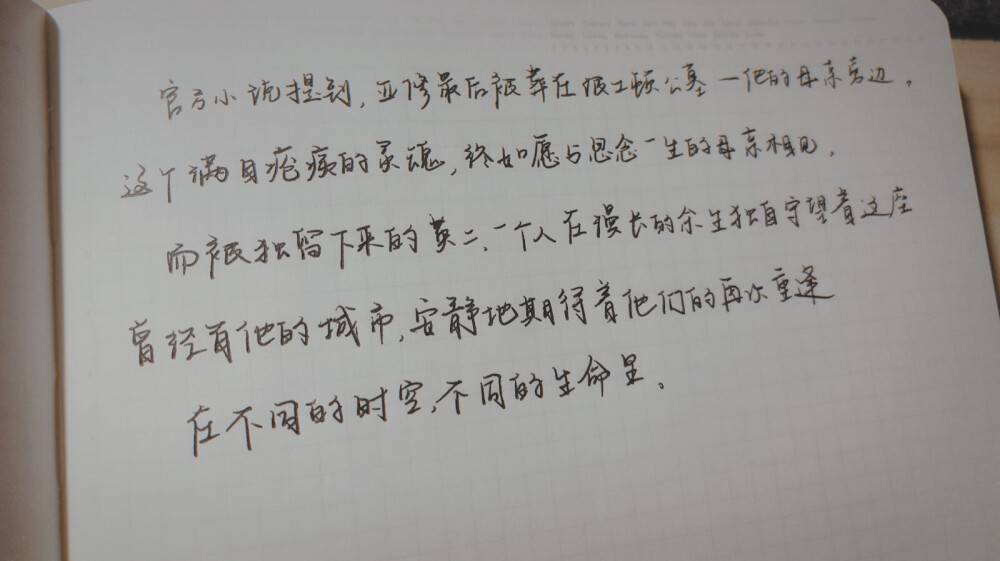 官方小说提到,亚修最后被葬在极工顿公墓—他的母亲旁边。
这个满目疮痍的灵魂,终如愿与思念一生的母亲相见。
而被独留下来的英二、一个人在漫长的余生独自守望着这座
曾经有他的城市,安静地期待着他们的再次重逢
在不同的时空,不同的生命里。